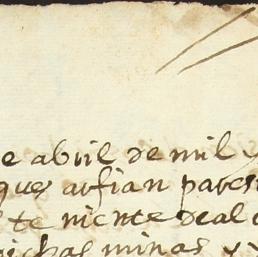 e abril de mil y
ques arfian pares
te niente de al
dichas minas y y